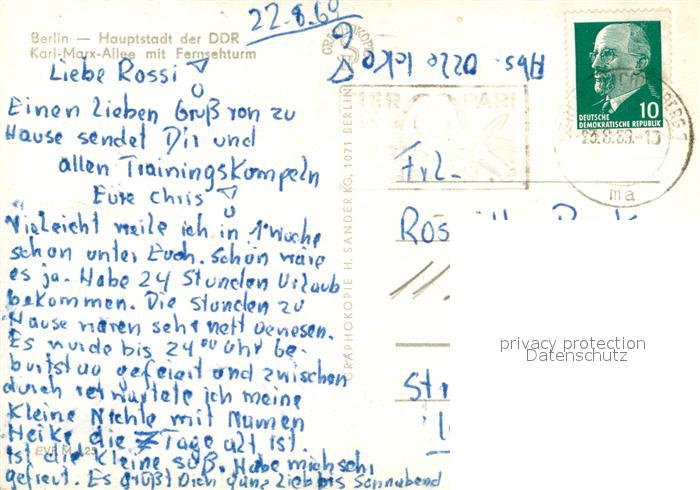 22.8.69
Berlin — Hauptstadt der DDR
Karl-Marx-Allee mit Fernsehturm
Liebe Rossi!
Einen lieben Gruß von zu
Hause sendet Dir und
allen Trainingskompeln
Eure Chris!
Vieleicht weile ich in 1 Woche
schon unter Euch. Schön wäre
es ja. Habe 24 Stunden Urlaub
bekommen. Die Stunden zu
Hause waren sehr nett gewesen.
Es wurde bis 24 00 Uhr ge-
burtstag gefeiert und zwischen
durch
ich meine
kleine Nichte mit Namen
Heike die 7 Tage alt ist.
Ist die kleine süß. Habe mich sehr
gefreut. Es grüßt Dich ganz lieb bis Sonnabend
GRAPHOKOPIE H. SANDER KG, 1071 BERLIN
Abs.
DEUTSCHE
DEMOKRATISCHE REPUBLIK
10
ma
Frl.
Ros
St
privacy protection
Datenschutz